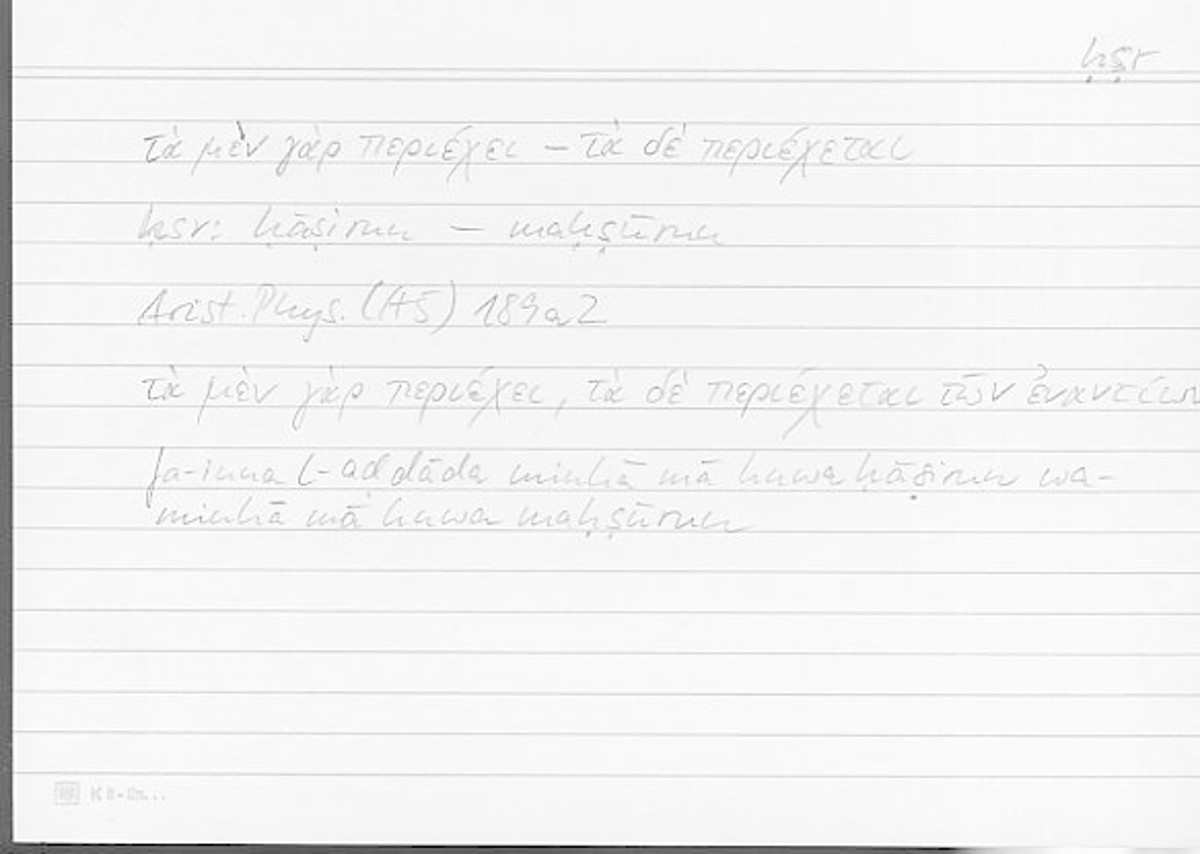 ḥṣr
τὰ μὲν γὰρ περιέχει — τὰ δὲ περιέχεται
ḥsr: ḥāṣirun — maḥṣūrun
Arist. Phys. (A5) 189a2
τὰ μὲν γὰρ περιέχει, τὰ δὲ περιέχεται τῶν ἐναντίων
fa-inna l-addāda minhā mā huwa ḥāṣirun wa-
minhā mā huwa maḥṣūrun